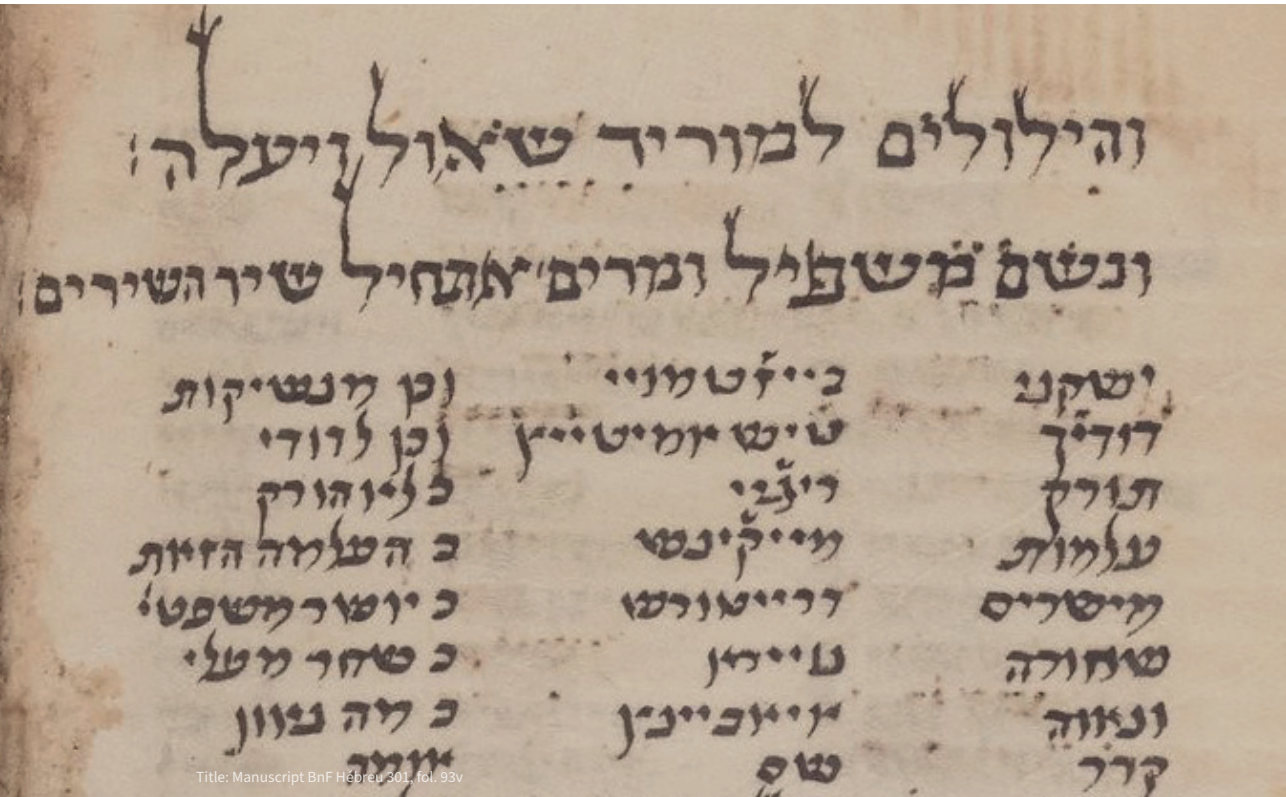 והילולים למוריד שאול ויעלה:
ונשם משפיל ומרים אתחיל שיר השירים:
ישקני בייזטמניי וכן מנשיקות
דודיך טישאמיטייץ וכן לדודי
תורק כליו הורק
עלמות מייקינש כ העלמה הזאת
מישרים דרייטורש כ יושר משפט
שחורה ניירא כ שחר מעלי
ונאוה איאבינץ כ מה נאוו
קדר
Title: Manuscript BnF Hébreu 301, fol. 93v